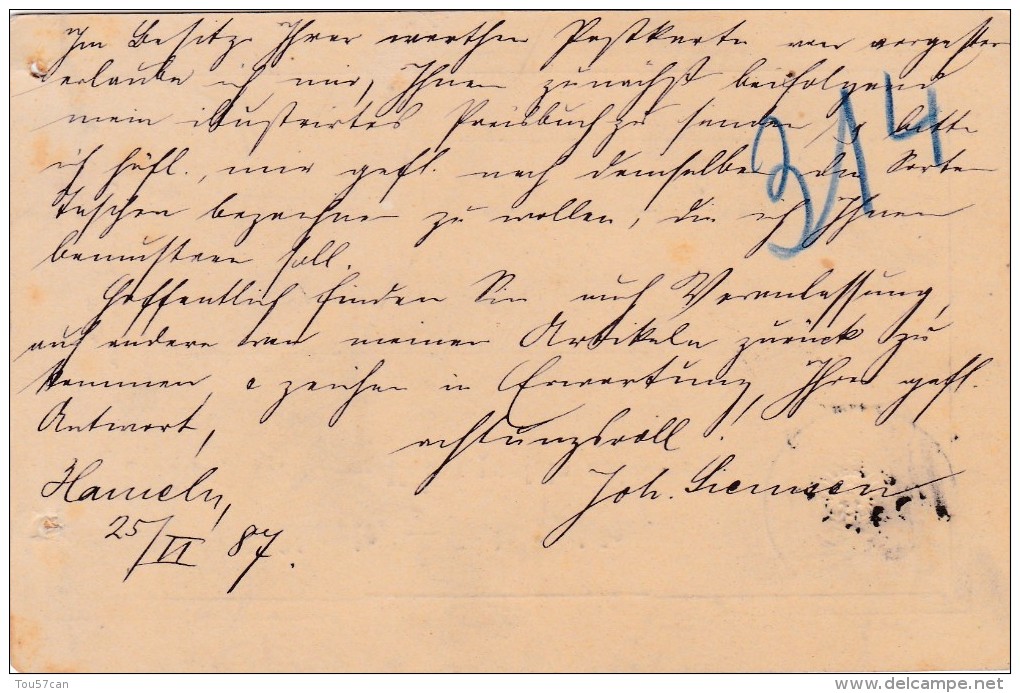 Im Besitz Ihrer werthen Postkarte von vorgestern
erlaube ich mir, Ihnen zunächst beifolgend
mein illustrirtes Preisbuch zu senden & bitte
ich höfl., mir gefl. nach demselben die Sorten
Taschen bezeichnen zu wollen, die ich Ihnen
bemustern soll.
Hoffentlich finden Sie auch Veranlassung,
auf andere von meinen Artikeln zurück zu
kommen, & zeichne in Erwartung Ihrer gefl.
Antwort, achtungsvoll!
Hameln, Joh.
25/VI 87.
314
Tou57can
www.delcampe.net